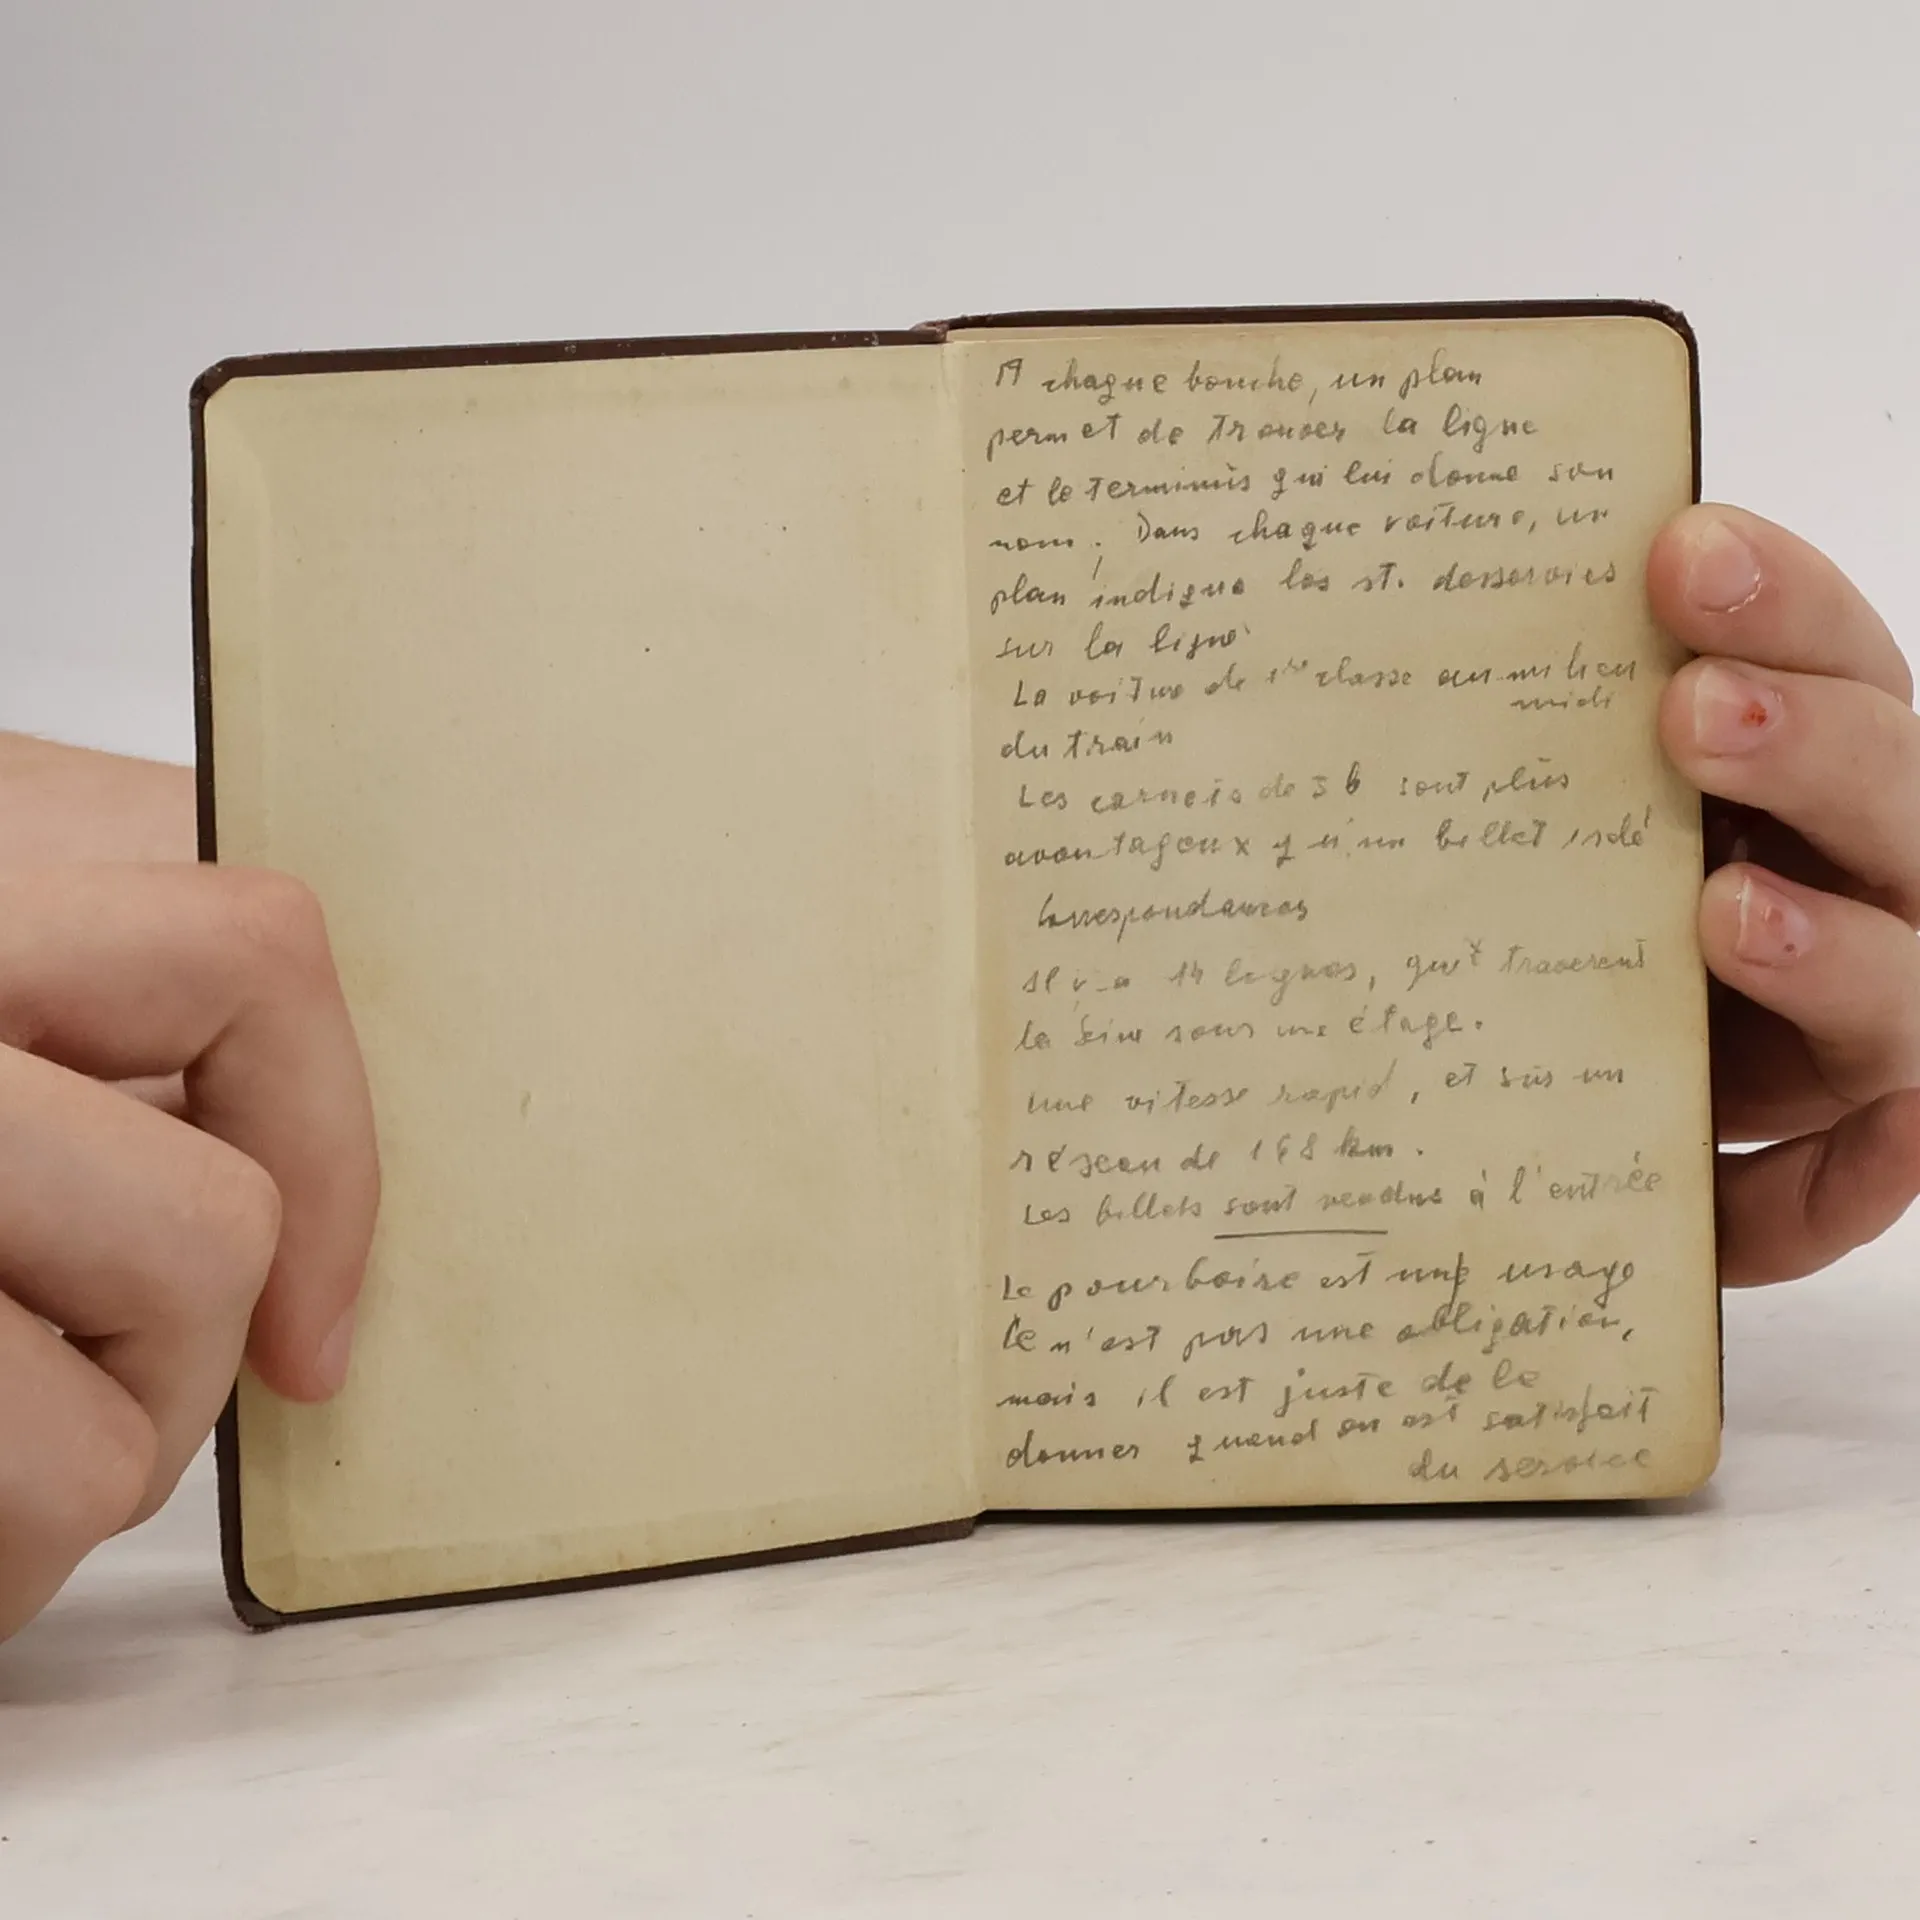 A chaque bouche, un plan
permet de trouver la ligne
et le terminus qui lui donne son
nom. Dans chaque voiture, un
plan indique les st. desservies
sur la ligne
La voiture de 1re classe au milieu
midi
du train
Les carnets de 5 b sont plus
avantageux qu'un billet isolé
Correspondances
Il y a 14 lignes, qui traversent
la Seine sous une étage.
Une vitesse rapid, et sus un
réseau de 168 km.
Les billets sont vendus à l'entrée
Le pourboire est une usage
Ce n'est pas une obligation,
mais il est juste de le
donner quand on est satisfait
du service